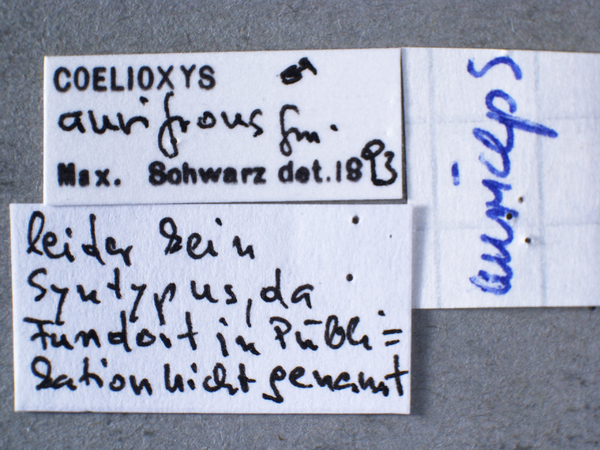 COELIOXYS ♂
aurifrons Sm.
Max. Schwarz det. 1893
leider kein
Syntypus, da
Fundort in Publi=
kation nicht genannt
auriceps